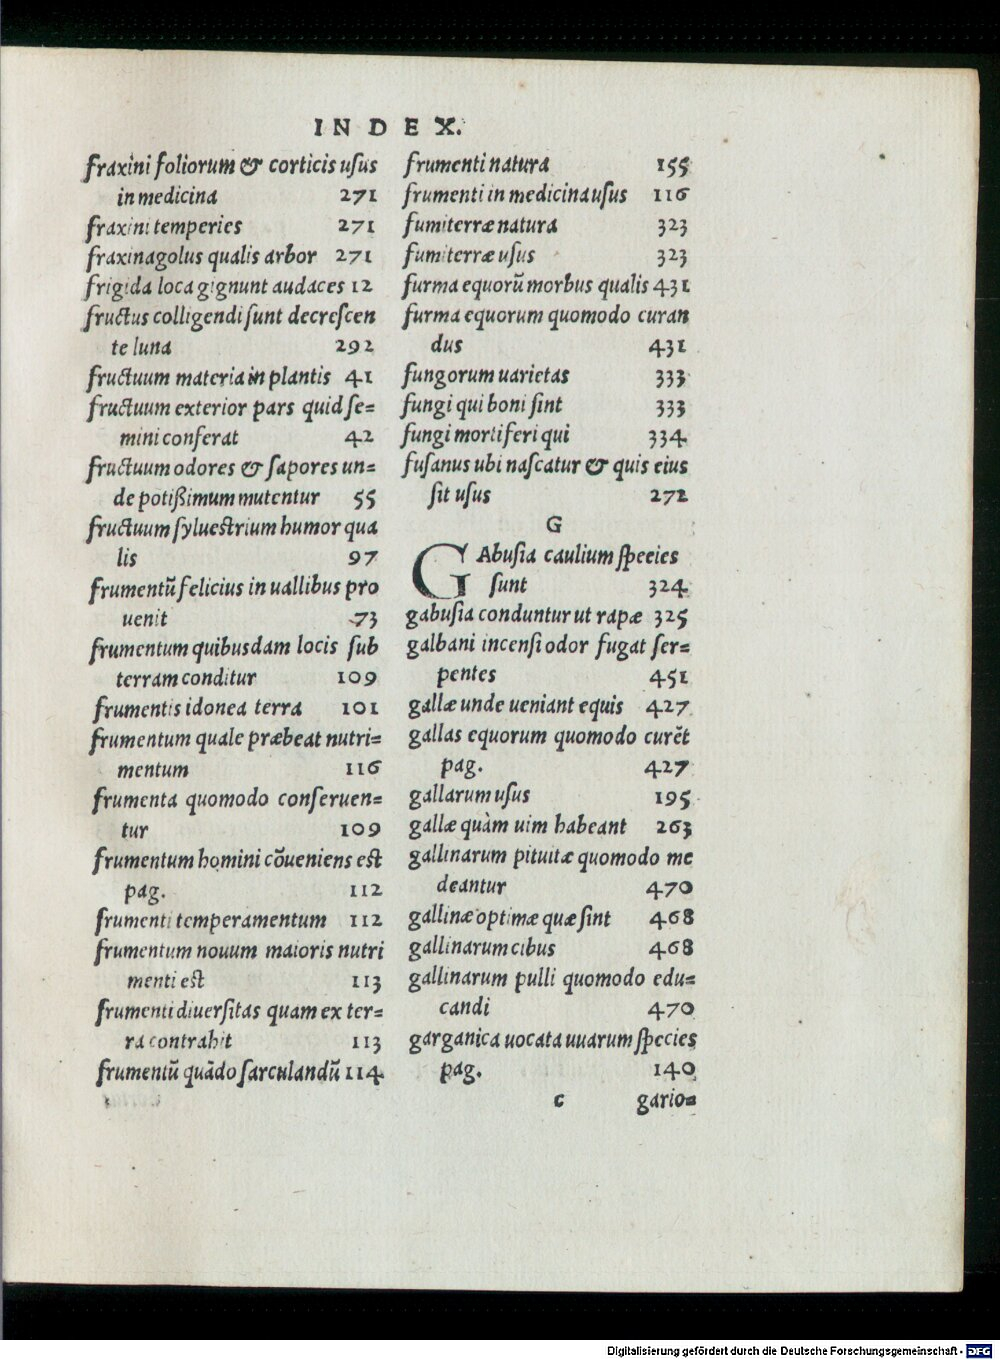 INDEX.
fraxini foliorum & corticis uſus
in medicina 271
fraxini temperies 271
fraxinagolus qualis arbor 271
frigida loca gignunt audaces 12
fructus colligendi ſunt decreſcen
te luna 292
fructuum materia in plantis 41
fructuum exterior pars quid ſe=
mini conferat 42
fructuum odores & ſapores un=
de potißimum mutentur 55
fructuum ſylueſtrium humor qua
lis 97
frumentũ felicius in uallibus pro
uenit 73
frumentum quibusdam locis ſub
terram conditur 109
frumentis idonea terra 101
frumentum quale præbeat nutri=
mentum 116
frumenta quomodo conſeruen=
tur 109
frumentum homini cõueniens eſt
pag. 112
frumenti temperamentum 112
frumentum nouum maioris nutri
menti eſt 113
frumenti diuerſitas quam ex ter=
ra contrahit 113
frumentũ quãdo ſarculandũ 114
frumenti natura 155
frumenti in medicina uſus 116
fumiterræ natura 323
fumiterræ uſus 323
furma equorũ morbus qualis 431
furma equorum quomodo curan
dus 431
fungorum uarietas 333
fungi qui boni ſint 333
fungi mortiferi qui 334
fuſanus ubi naſcatur & quis eius
ſit uſus 272
G
GAbuſia caulium ſpecies
ſunt 324
gabuſia conduntur ut rapæ 325
galbani incenſi odor fugat ſer=
pentes 451
gallæ unde ueniant equis 427
gallas equorum quomodo curẽt
pag. 427
gallarum uſus 195
gallæ quàm uim habeant 263
gallinarum pituitæ quomodo me
deantur 470
gallinæ optimæ quæ ſint 468
gallinarum cibus 468
gallinarum pulli quomodo edu=
candi 470
garganica uocata uuarum ſpecies
pag. 140
c gario=
Digitalisierung gefördert durch die Deutsche Forschungsgemeinschaft - DFG